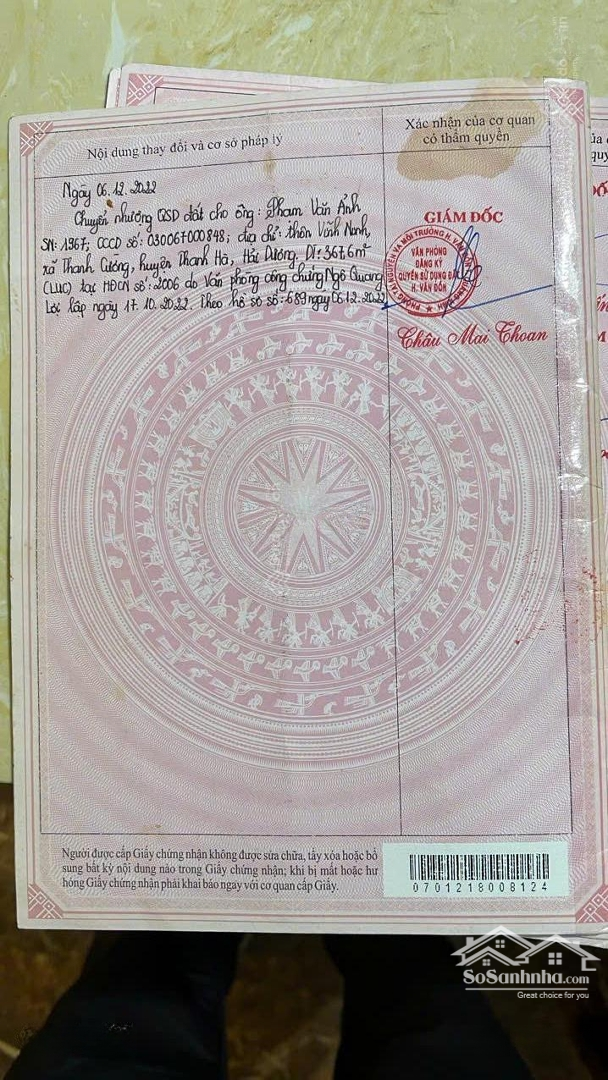 Nội dung thay đổi và cơ sở pháp lý
Xác nhận của cơ quan
có thẩm quyền
Ngày 06.12.2022
Chuyển nhượng QSD đất cho ông: Phạm Văn Ảnh
SN: 1967; CCCD số: 030067000848; địa chỉ: thôn Vĩnh Ninh,
xã Thanh Cường, huyện Thanh Hà, Hải Dương, DT: 367,6m²
(LUC) tại HĐCN số: 2006 do Văn phòng công chứng Ngô Quang
Lợi lập ngày 17.10.2022. Theo hồ sơ số: 689 ngày 06.12.2022
GIÁM ĐỐC
VĂN PHÒNG
ĐĂNG KÝ
QUYỀN SỬ DỤNG ĐẤT
H. VÂN ĐỒN
Châu Mai Thoan
Người được cấp Giấy chứng nhận không được sửa chữa, tẩy xóa hoặc bổ
sung bất kỳ nội dung nào trong Giấy chứng nhận; khi bị mất hoặc hư
hỏng Giấy chứng nhận phải khai báo ngay với cơ quan cấp Giấy.
0701218008124
SoSanhnha.com
Great choice for you